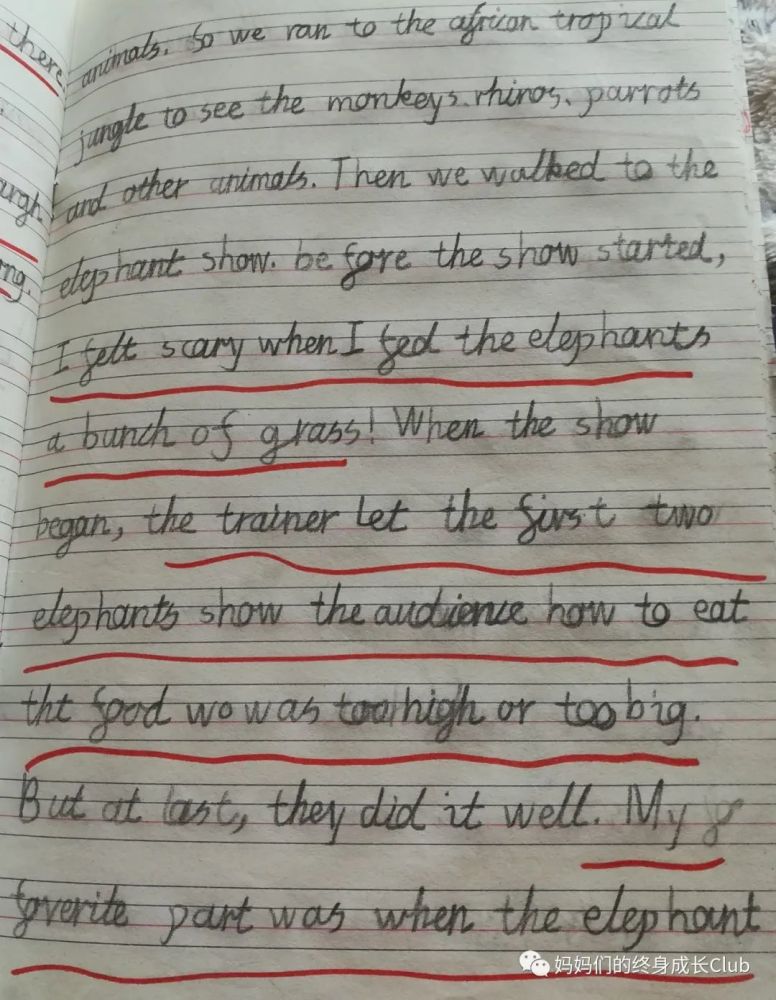 there.
urgh!
ng.
animals. So we ran to the african tropical
jungle to see the monkeys. rhinos、parrots
and other animals. Then we walked to the
elephant show. be fore the show started,
I felt scary when I fed the elephants
a bunch of grass! When the show
began, the trainer let the first two
elephants show the audience how to eat
tht food wo was too high or too big.
But at last, they did it well. My
faverite part was when the elephant
妈妈们的终身成长Club